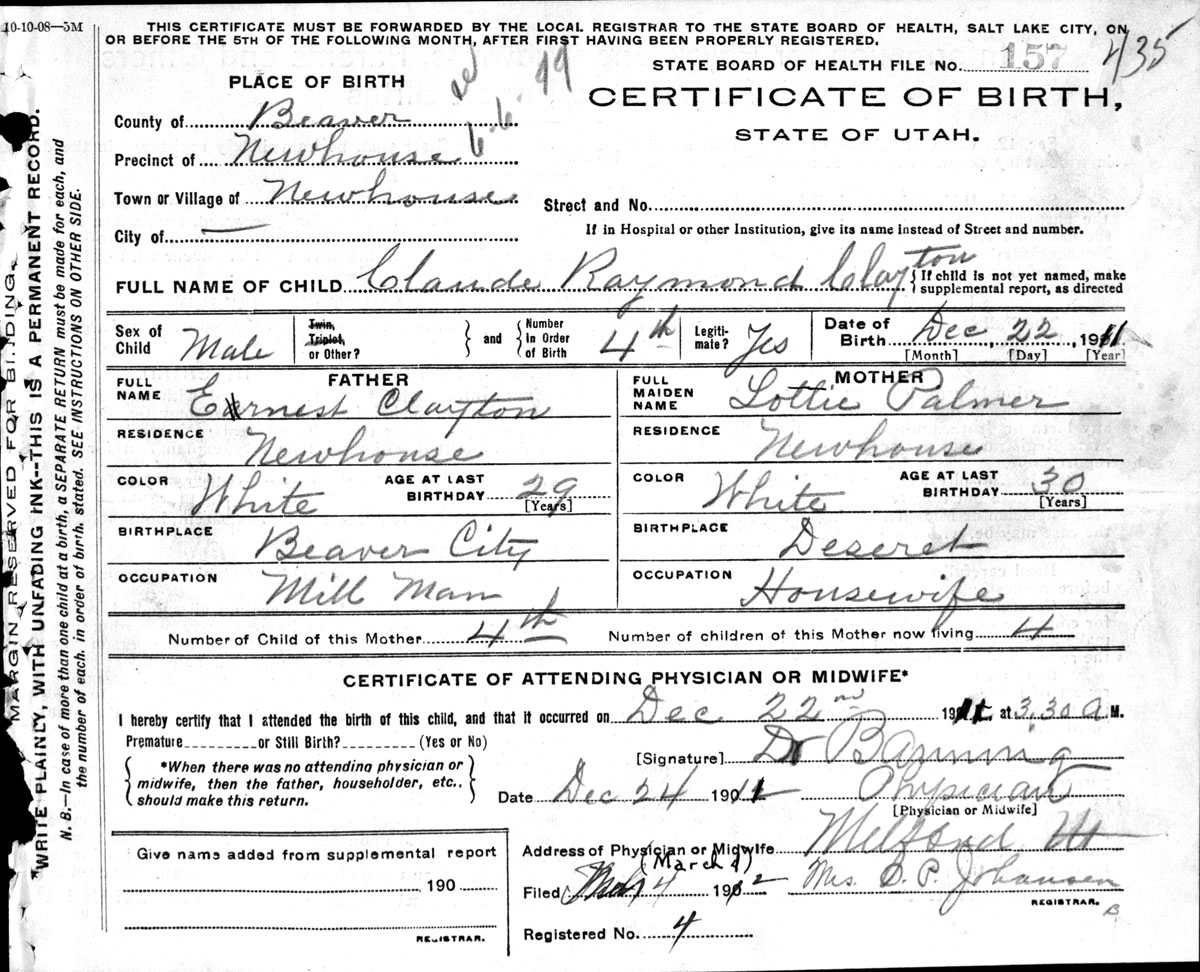 10-10-08—5M
THIS CERTIFICATE MUST BE FORWARDED BY THE LOCAL REGISTRAR TO THE STATE BOARD OF HEALTH, SALT LAKE CITY, ON
OR BEFORE THE 5TH OF THE FOLLOWING MONTH, AFTER FIRST HAVING BEEN PROPERLY REGISTERED.
435
STATE BOARD OF HEALTH FILE NO. 157
PLACE OF BIRTH
CERTIFICATE OF BIRTH,
STATE OF UTAH.
County of Beaver
Precinct of Newhouse
Town or Village of Newhouse
Street and No.
City of —
If in Hospital or other Institution, give its name instead of Street and number.
FULL NAME OF CHILD Claude Raymond Clayton { If child is not yet named, make
supplemental report, as directed
Sex of Child Male Twin, Triplet, or Other? } and { Number in Order of Birth 4th Legiti-mate? Yes Date of Birth Dec 22, 1911
[Month] [Day] [Year]
FATHER
FULL NAME Earnest Clayton
RESIDENCE Newhouse
COLOR White AGE AT LAST BIRTHDAY 29 [Years]
BIRTHPLACE Beaver City
OCCUPATION Mill Man
MOTHER
FULL MAIDEN NAME Lottie Palmer
RESIDENCE Newhouse
COLOR White AGE AT LAST BIRTHDAY 30 [Years]
BIRTHPLACE Deseret
OCCUPATION Housewife
Number of Child of this Mother 4th Number of children of this Mother now living 4
CERTIFICATE OF ATTENDING PHYSICIAN OR MIDWIFE*
I hereby certify that I attended the birth of this child, and that it occurred on Dec 22nd 1911, at 3,30 A M.
Premature or Still Birth? (Yes or No)
*When there was no attending physician or
midwife, then the father, householder, etc.,
should make this return.
[Signature] Dr Banning
Date Dec 24 1911 Physician
[Physician or Midwife]
Address of Physician or Midwife Milford Ut
(March 4)
Filed 4 1912 Mrs. C. P. Johansen
REGISTRAR.
B
Registered No. 4
Give name added from supplemental report
190
REGISTRAR.
MARGIN RESERVED FOR BINDING.
*WRITE PLAINLY, WITH UNFADING INK--THIS IS A PERMANENT RECORD.
N. B.—In case of more than one child at a birth, a SEPARATE RETURN must be made for each, and
the number of each, in order of birth, stated. SEE INSTRUCTIONS ON OTHER SIDE.